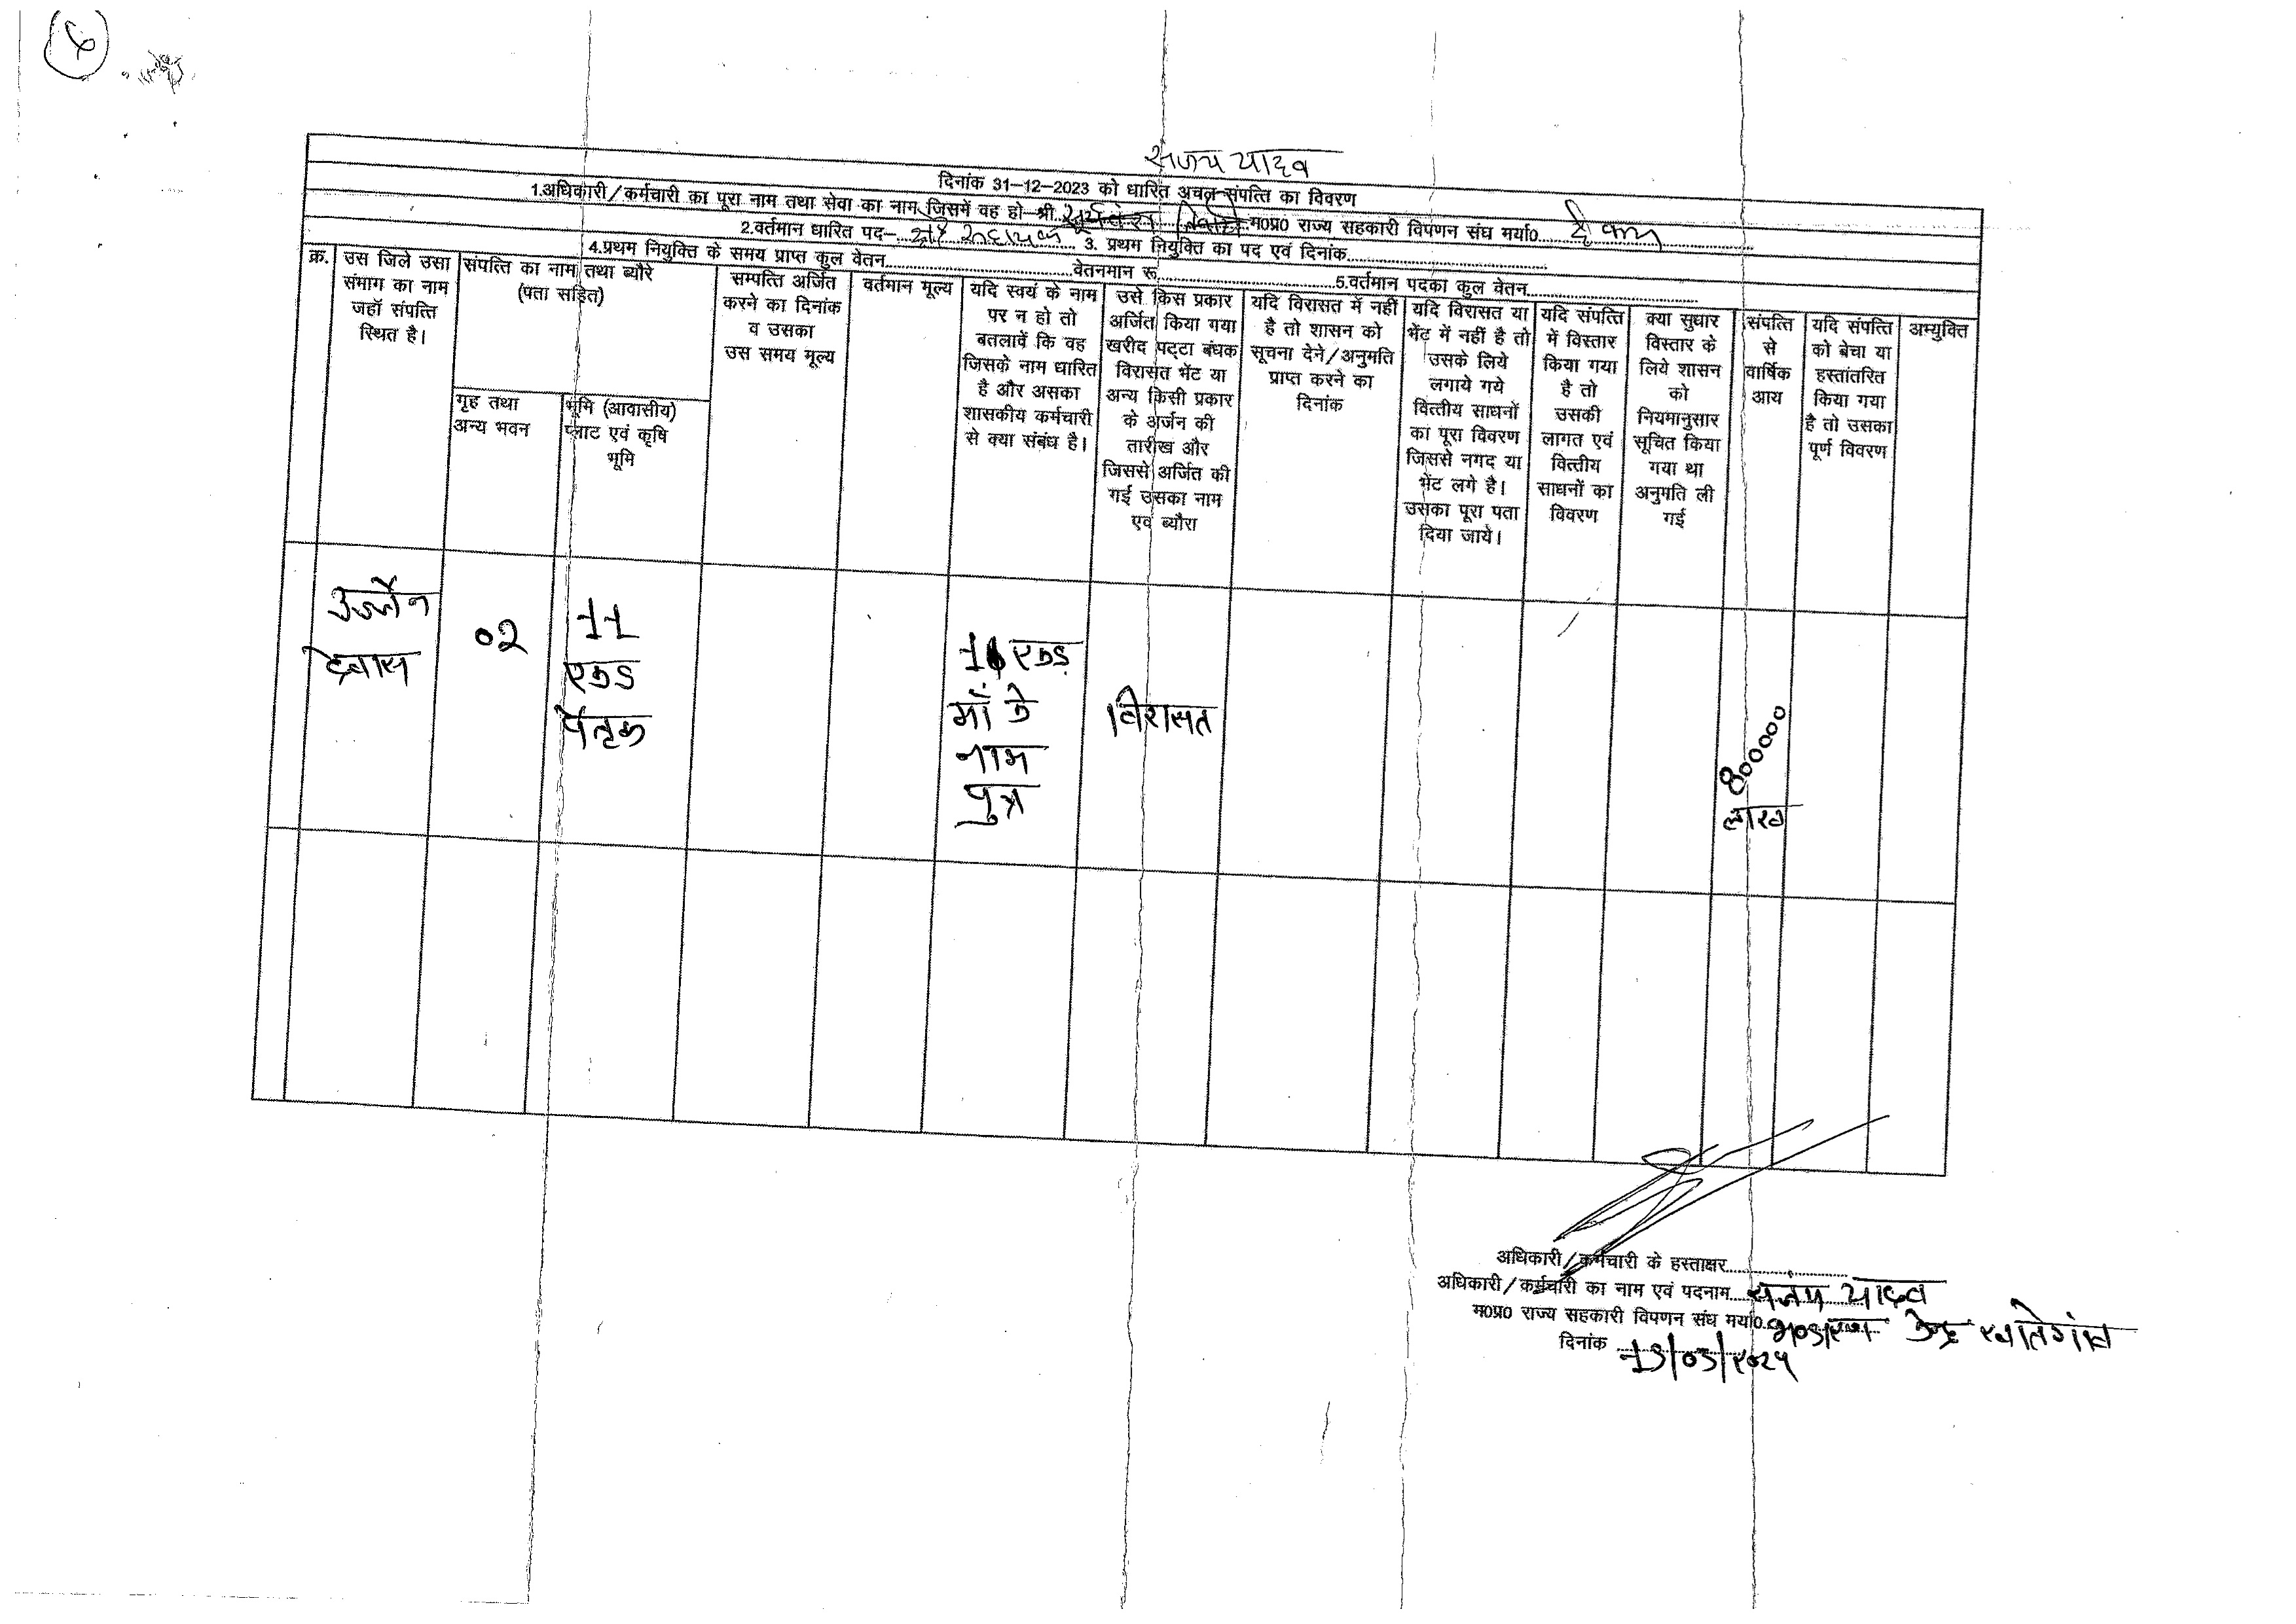 संजय यादव
दिनांक 31-12-2023 को धारित अचल संपत्ति का विवरण
1.अधिकारी/कर्मचारी का पूरा नाम तथा सेवा का नाम जिसमें वह हो श्री म0प्र0 राज्य सहकारी विपणन संघ मर्या0
2.वर्तमान धारित पद– सहायक 3. प्रथम नियुक्ति का पद एवं दिनांक
4.प्रथम नियुक्ति के समय प्राप्त कुल वेतन वेतनमान रू 5.वर्तमान पदका कुल वेतन
क्र.
उस जिले उसा
संभाग का नाम
जहॉ संपत्ति
स्थित है।
संपत्ति का नाम तथा ब्यौरे
(पता सहित)
गृह तथा
अन्य भवन
भूमि (आवासीय)
प्लाट एवं कृषि
भूमि
सम्पत्ति अर्जित
करने का दिनांक
व उसका
उस समय मूल्य
वर्तमान मूल्य
यदि स्वयं के नाम
पर न हो तो
बतलावें कि वह
जिसके नाम धारित
है और असका
शासकीय कर्मचारी
से क्या संबंध है।
उसे किस प्रकार
अर्जित किया गया
खरीद पट्टा बंधक
विरासत भेंट या
अन्य किसी प्रकार
के अर्जन की
तारीख और
जिससे अर्जित की
गई उसका नाम
एवं ब्यौरा
यदि विरासत में नहीं
है तो शासन को
सूचना देने/अनुमति
प्राप्त करने का
दिनांक
यदि विरासत या
भेंट में नहीं है तो
उसके लिये
लगाये गये
वित्तीय साधनों
का पूरा विवरण
जिससे नगद या
भेंट लगे है।
उसका पूरा पता
दिया जाये।
यदि संपत्ति
में विस्तार
किया गया
है तो
उसकी
लागत एवं
वित्तीय
साधनों का
विवरण
क्या सुधार
विस्तार के
लिये शासन
को
नियमानुसार
सूचित किया
गया था
अनुमति ली
गई
संपत्ति
से
वार्षिक
आय
यदि संपत्ति
को बेचा या
हस्तांतरित
किया गया
है तो उसका
पूर्ण विवरण
अभ्युक्ति
उज्जैन
देवास
०२
11
एकड
पैतृक
एकड़
माँ के
नाम
पुत्र
विरासत
लाख
अधिकारी/कर्मचारी के हस्ताक्षर
अधिकारी/कर्मचारी का नाम एवं पदनाम संजय यादव
म0प्र0 राज्य सहकारी विपणन संघ मर्या0 भण्डारण केन्द्र खातेगांव
दिनांक